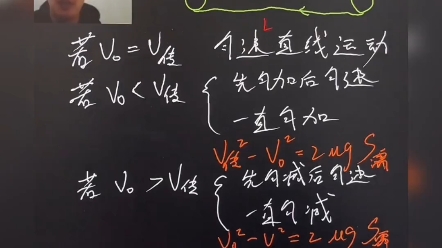 L
若 V₀ = V传 匀速直线运动
若 V₀ < V传 { 先匀加后匀速
一直匀加
V传² - V₀² = 2μg S需
若 V₀ > V传 { 先匀减后匀速
一直匀减
V₀² - V² = 2μg S需